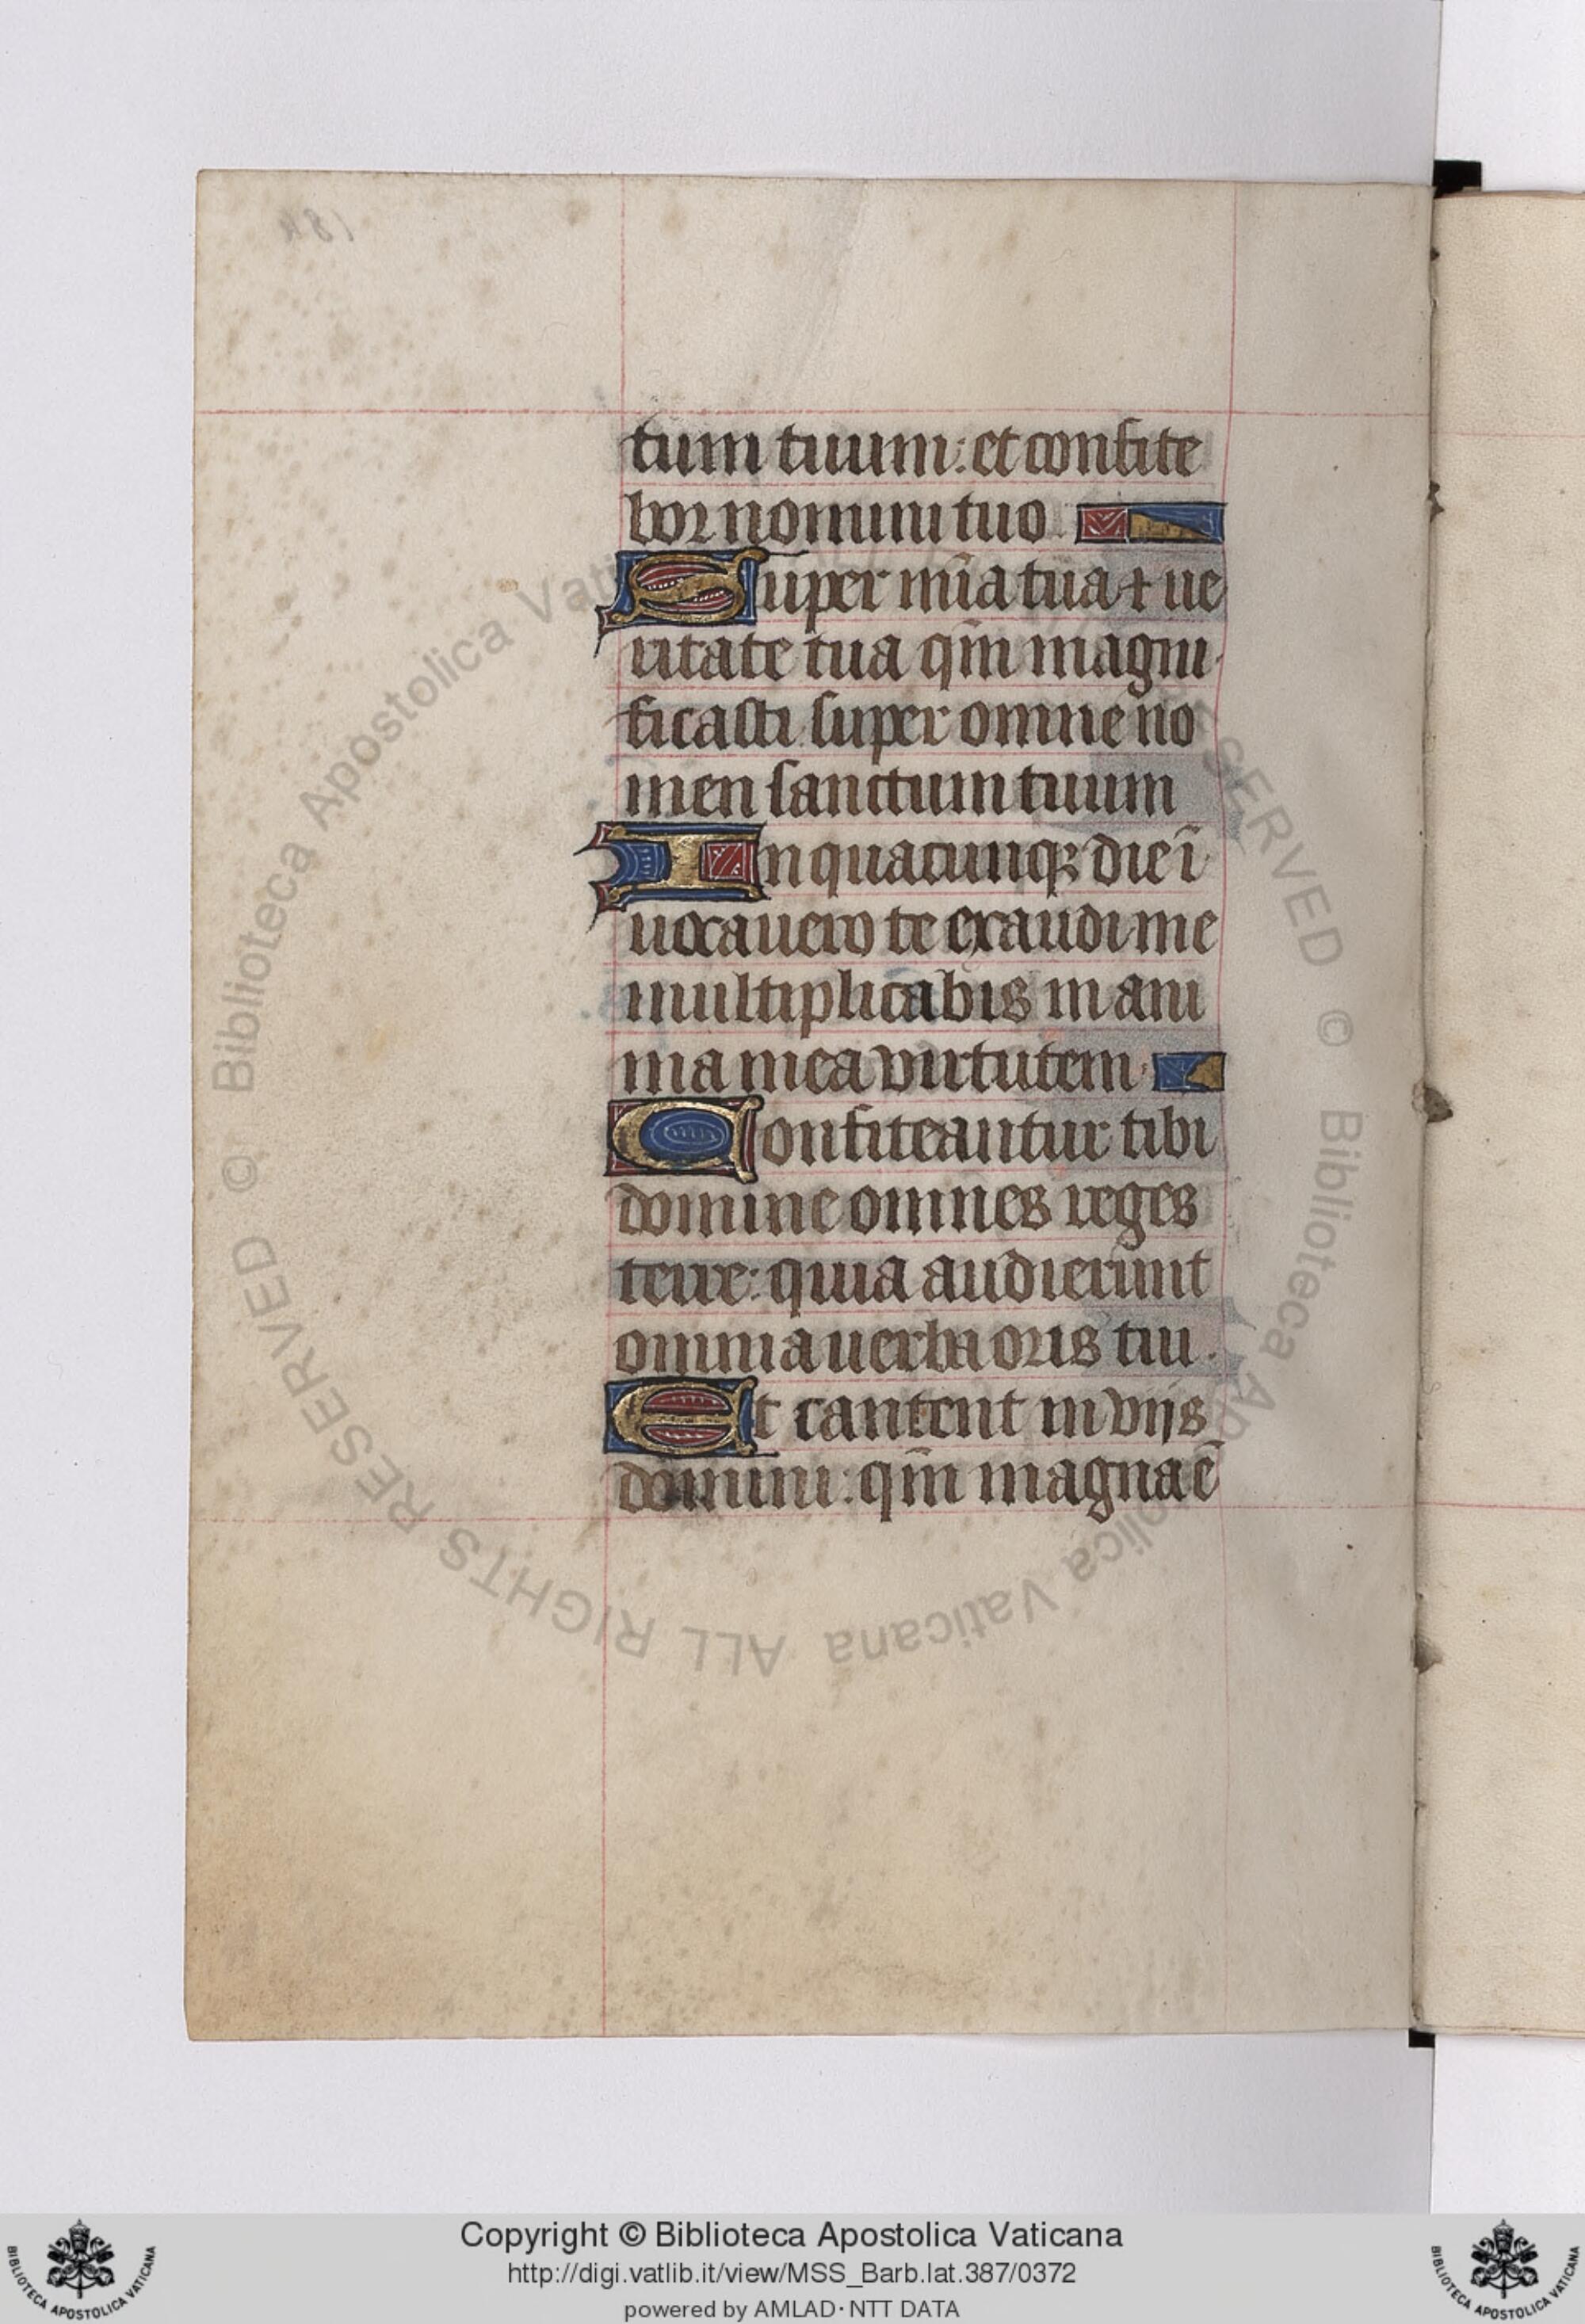 tum tuum: et confite
bor nomini tuo
Super mīa tua ⁊ ue
ritate tua qm̄ magni
ficasti super omne no
men sanctum tuum
In quacunqꝫ die ī
uocauero te exaudi me
multiplicabis in ani
ma mea virtutem
Confiteantur tibi
domine omnes reges
terre: quia audierunt
omnia uerba oris tui.
Et cantent in viis
domini: qm̄ magna ē
© Biblioteca Apostolica Vaticana ALL RIGHTS RESERVED © Biblioteca Apostolica Vaticana ALL RIGHTS RESERVED
Copyright © Biblioteca Apostolica Vaticana
http://digi.vatlib.it/view/MSS_Barb.lat.387/0372
powered by AMLAD·NTT DATA
BIBLIOTECA APOSTOLICA VATICANA
BIBLIOTECA APOSTOLICA VATICANA